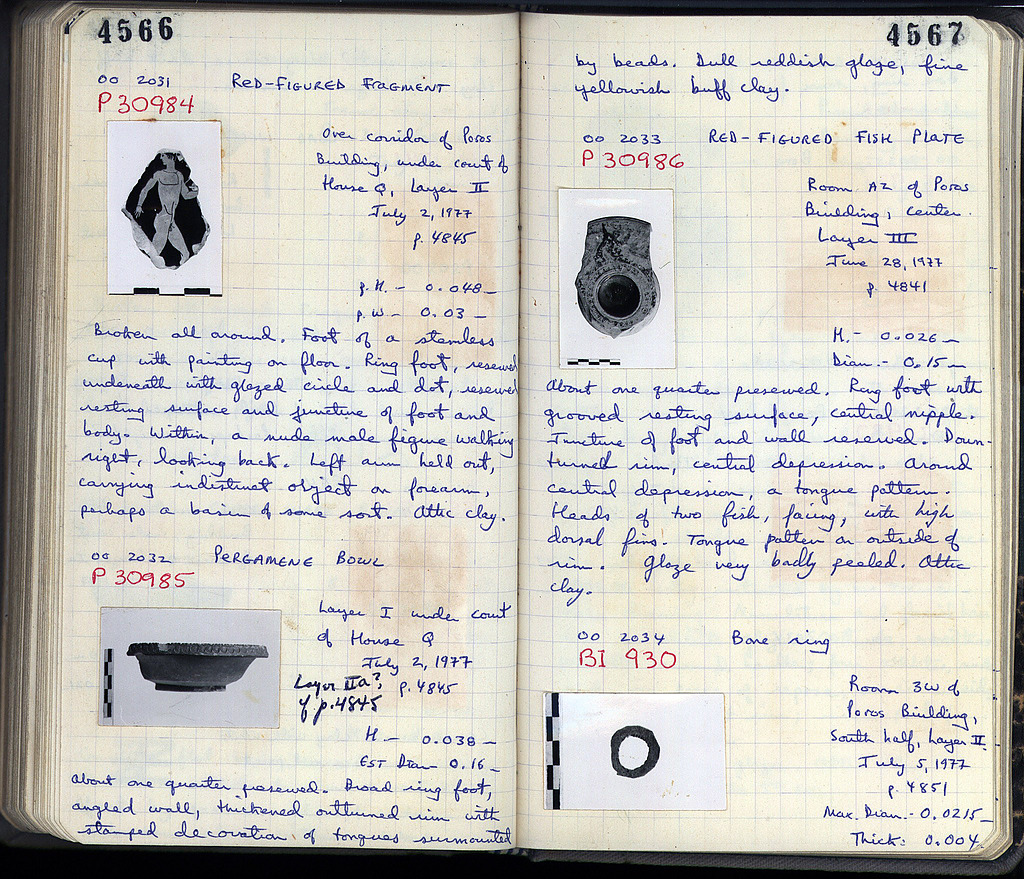 4566
OO 2031 RED-FIGURED FRAGMENT
P 30984
Over corridor of Poros
Building, under court of
House Q, Layer II
July 2, 1977
p. 4845
p. H. - 0.048 -
p. W - 0.03 -
Broken all around. Foot of a stemless
cup with painting on floor. Ring foot, reserved
underneath with glazed circle and dot, reserved
resting surface and juncture of foot and
body. Within, a nude male figure walking
right, looking back. Left arm held out,
carrying indistinct object on forearm,
perhaps a basin of some sort. Attic clay.
OO 2032 PERGAMENE BOWL
P 30985
Layer I under court
of House Q
July 2, 1977
Layer IIa? p. 4845
cf p. 4845
H - 0.038 -
EST Diam - 0.16 -
About one quarter preserved. Broad ring foot,
angled wall, thickened outturned rim with
stamped decoration of tongues surmounted
4567
by beads. Dull reddish glaze, fine
yellowish buff clay.
OO 2033 RED-FIGURED FISH PLATE
P 30986
Room A2 of Poros
Building, center.
Layer III
June 28, 1977
p 4841
H. - 0.026 -
Diam. - 0.15 -
About one quarter preserved. Ring foot with
grooved resting surface, central nipple.
Juncture of foot and wall reserved. Down-
turned rim, central depression. Around
central depression, a tongue pattern.
Heads of two fish, facing, with high
dorsal fins. Tongue pattern on outside of
rim. Glaze very badly peeled. Attic
clay.
OO 2034 Bone ring
BI 930
Room 3W of
Poros Building,
South half, Layer II
July 5, 1977
p. 4851
Max. Diam. - 0.0215 -
Thick: 0.004